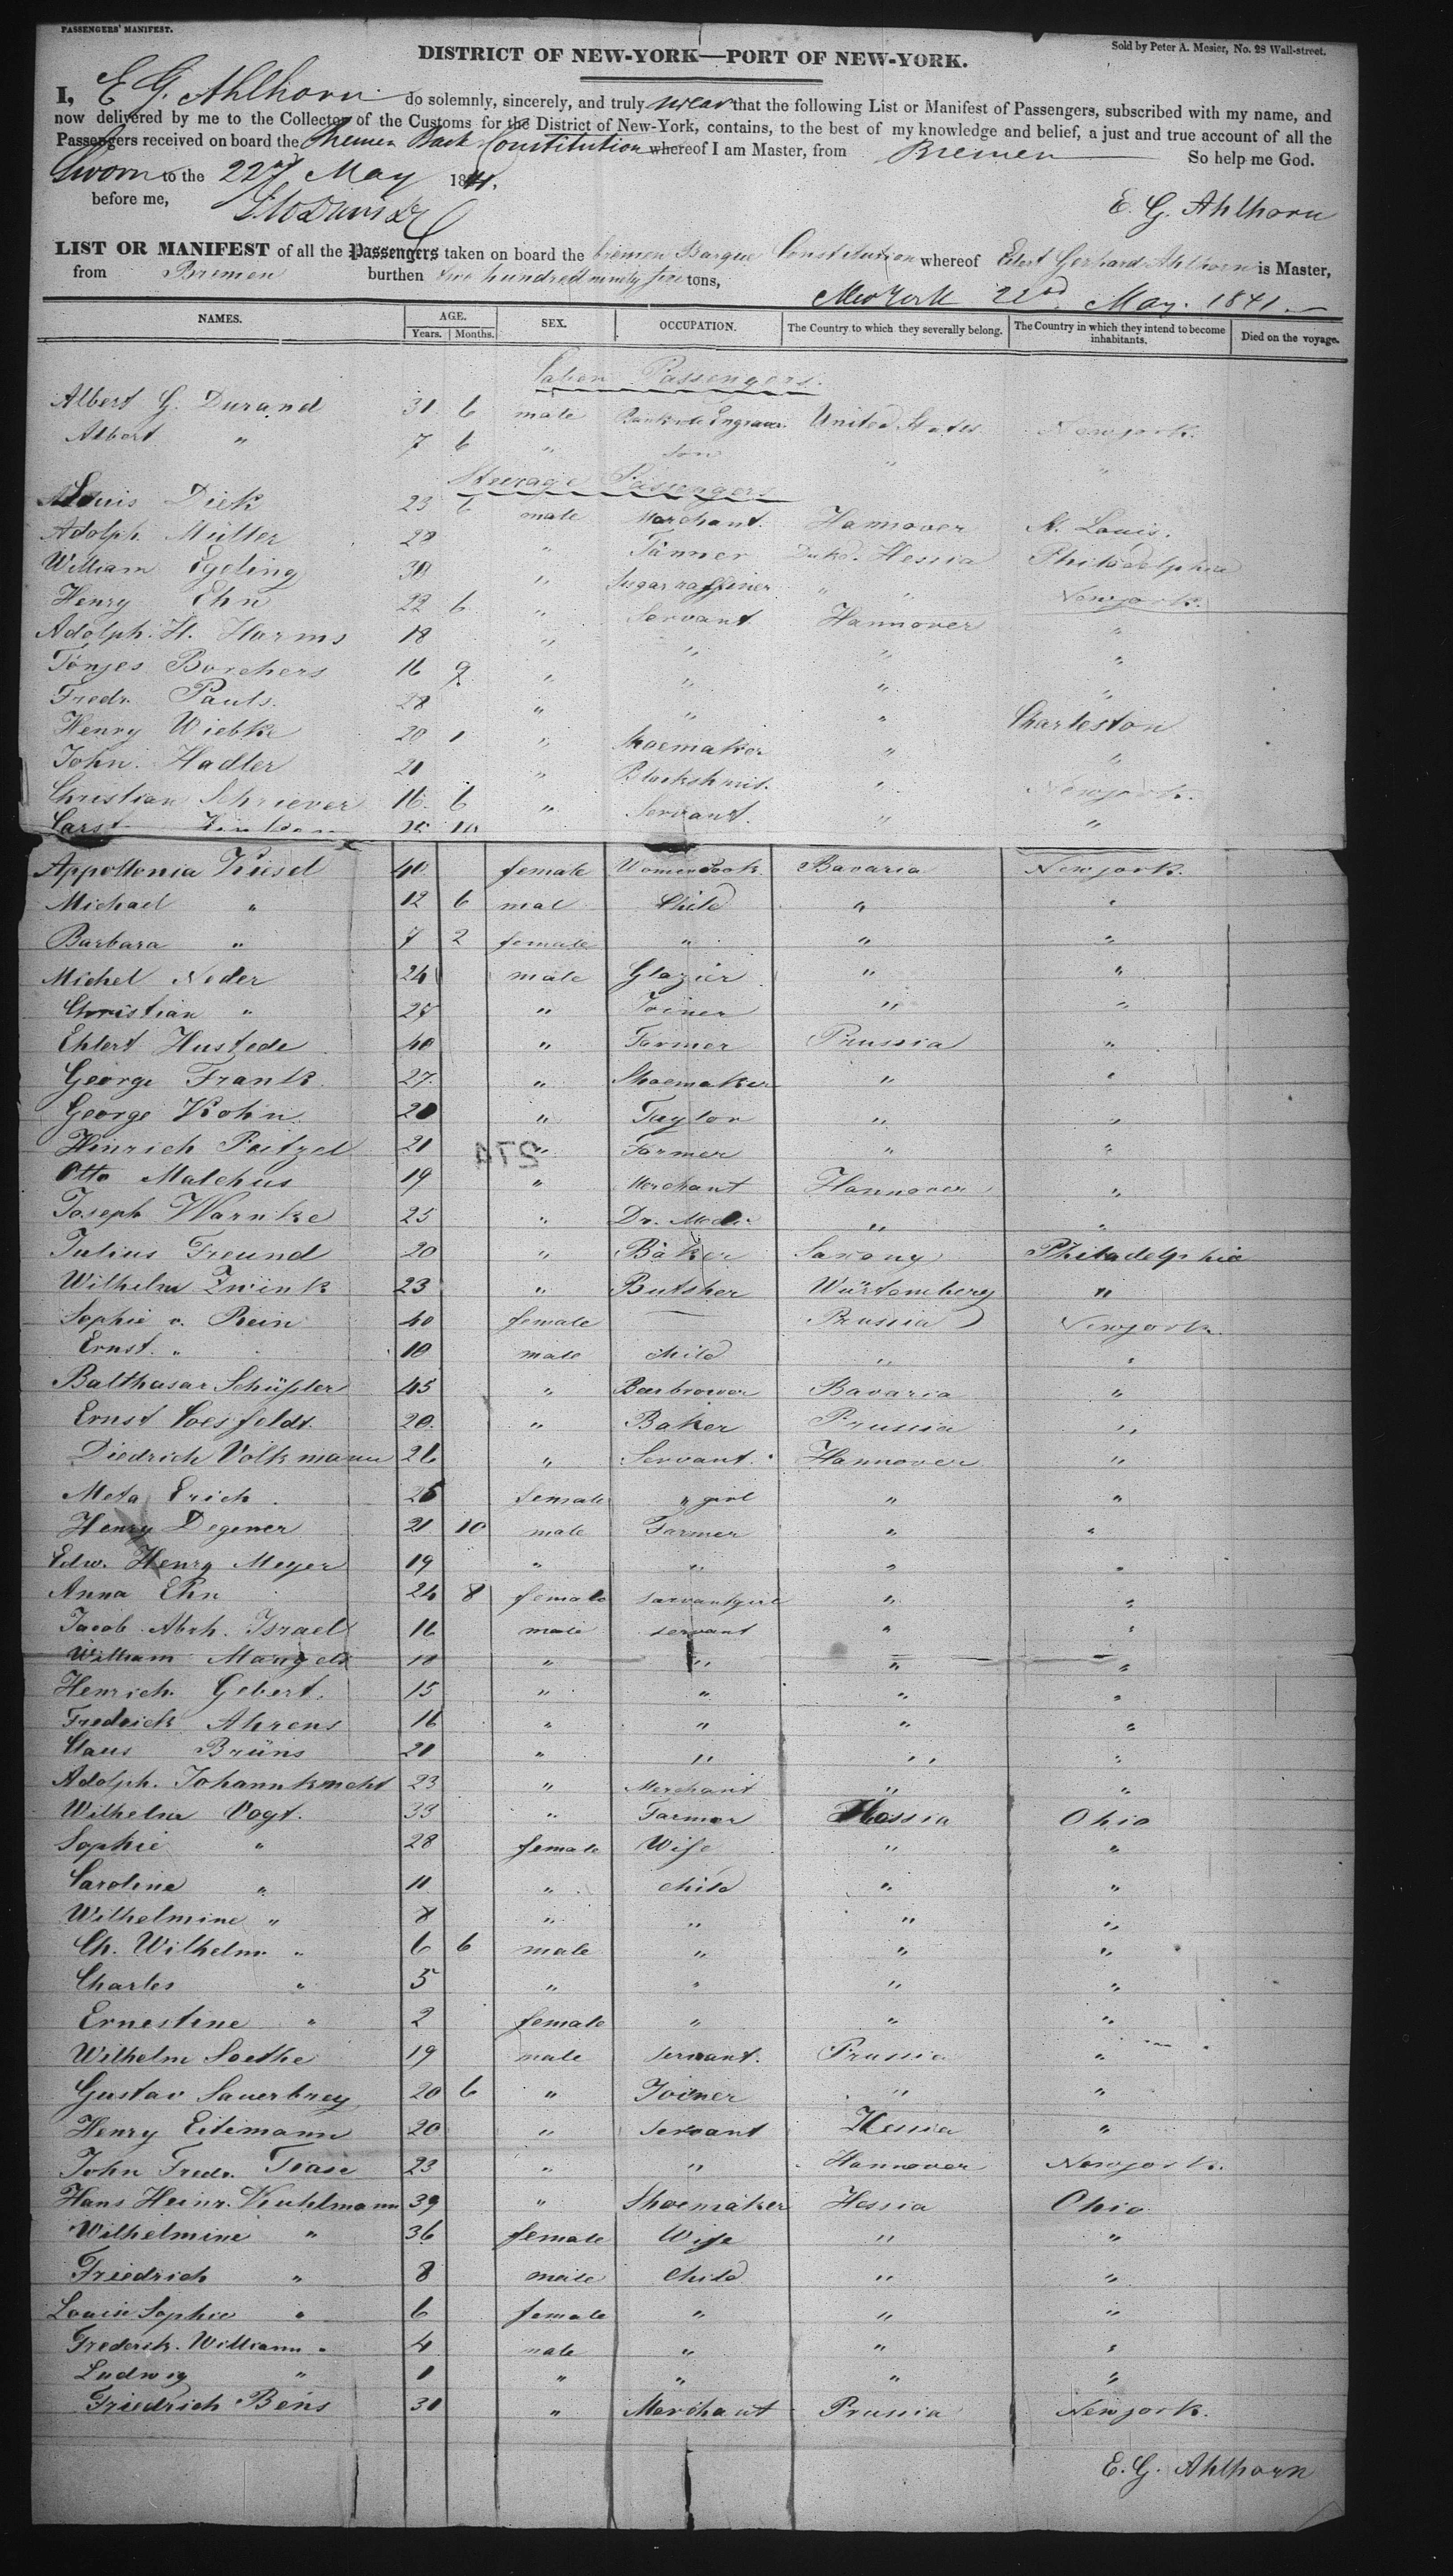 PASSENGERS' MANIFEST.
Sold by Peter A. Mesier, No. 28 Wall-street.
DISTRICT OF NEW-YORK—PORT OF NEW-YORK.
I, E G. Ahlhorn do solemnly, sincerely, and truly swear that the following List or Manifest of Passengers, subscribed with my name, and
now delivered by me to the Collector of the Customs for the District of New-York, contains, to the best of my knowledge and belief, a just and true account of all the
Passengers received on board the Bremen Bark Constitution whereof I am Master, from Bremen So help me God.
Sworn to the 22nd May 1841.
before me,
E. G. Ahlhorn
LIST OR MANIFEST of all the Passengers taken on board the bremen Barque Constitution whereof Gerhard Ahlhorn is Master,
from Bremen burthen two hundred ninety five tons,
New York 22nd May. 1841.
NAMES. AGE. SEX. OCCUPATION. The Country to which they severally belong. The Country in which they intend to become inhabitants. Died on the voyage.
Years. Months.
Caben Passengers.
Albert G. Durand 31 6 male Banknote Engraver United States Newyork.
Albert " 7 6 " son " "
Steerage Passengers
Louis Dick 23 6 male Merchant. Hannover St. Louis.
Adolph Müller 28 " Tanner Hessia Philadelphia
William Egeling 30 " Sugar raffiner " " Newyork.
Henry Ehn 22 6 " Servant Hannover "
Adolph. H. Harms 18 " " " "
Tönjes Borchers 16 9 " " " "
Fredr. Pauls. 28 " " " Charleston
Henry Wiebke 20 1 " Shoemaker " "
John. Hadler 21 " Blackshmit. " Newyork.
Christian Schriever 16. 6 " Servant. " "
Carst
Appollonia Kiesel 40. female Bavaria Newyork.
Michael " 12 6 mal Child " "
Barbara " 7 2 female " " "
Michel Neder 24 male Glazier " "
Christian " 27 " Joiner " "
Ehlert Hustede 40 " Farmer Prussia "
George Frank 27. " Shoemaker " "
George Kohn 20 " Taylor " "
Hinrich Peitzel 21 " Farmer " "
274
Otto Malchus 19 " Merchant Hannover "
Joseph Warnke 25 " Dr. Med. " "
Julius Freund 20 " Baker Saxony Philadelphia
Wilhelm Zwink 23 " Butsher Würtemberg "
Sophie v. Rein 40 female — Prussia Newyork
Ernst. " 10 male child " "
Balthasar Schüßler 45 " Beerbrower Bavaria "
Ernst Coesfeldt. 20. " Baker Prussia "
Diedrich Volkmann 26 " Servant. Hannover "
Meta Erich 25 female " girl " "
Henry Degener 21 10 male Farmer " "
Edw. Henry Meyer 19 " " " "
Anna Ehn 24 8 female servantgirl " "
Jacob Abrh. Israel 16 male servant " "
William Mangels 18 " " " "
Henrich Gebert. 15 " " " "
Fredrick Ahrens 16 " " " "
Claus Brüns 20 " " " "
Adolph. Johannknecht 23 " Merchant " "
Wilhelm Vogt. 33 " Farmer Hessia Ohio
Sophie " 28 female Wife " "
Caroline " 11 " child " "
Wilhelmine " 8 " " " "
Ch. Wilhelm " 6 6 male " " "
Charles " 5 " " " "
Ernestine " 2 female " " "
Wilhelm Soethe 19 male servant. Prussia "
Gustav Sauerbrey 20 6 " Joiner " "
Henry Eitemann 20 " Servant Hessia "
John Fredr. Tiase 23 " " Hannover Newyork.
Hans Heinr. Kuhlmann 39 " Shoemaker Hessia Ohio
Wilhelmine " 36 female Wife " "
Friedrich " 8 male Child " "
Louise Sophie " 6 female " " "
Frederik. William " 4 male " " "
Ludwig " 1 " " " "
Friedrich Bens 30 " Merchant Prussia Newyork.
E. G. Ahlhorn